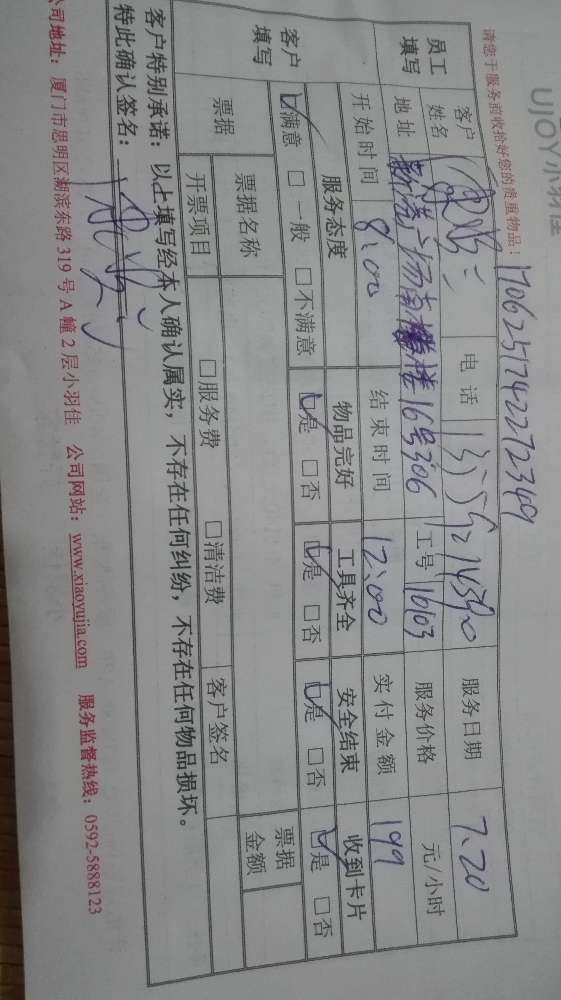 UJOY小羽佳
请您于服务前收拾好您的贵重物品！
1706251742272349
员工填写 客户姓名 电话 服务日期 7.20
地址 工号 16103 服务价格 元/小时
开始时间 8:00 结束时间 12:00 实付金额 199
客户填写 服务态度 物品完好 工具齐全 安全结束 收到卡片
☑满意 □一般 □不满意 ☑是 □否 ☑是 □否 ☑是 □否 ☑是 □否
票据 票据名称 票据金额
开票项目 □服务费 □清洁费 客户签名
客户特别承诺：以上填写经本人确认属实，不存在任何纠纷，不存在任何物品损坏。
特此确认签名：
公司地址：厦门市思明区湖滨东路319号A幢2层小羽佳 公司网站：www.xiaoyujia.com 服务监督热线：0592-5888123